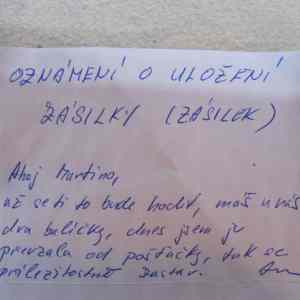 OZNÁMENÍ O ULOŽENÍ
ZÁSILKY (ZÁSILEK)
Ahoj Martino,
až se ti to bude hodit, máš u nás
dva balíčky, dnes jsem je
převzala od pošťačky, tak se
příležitostně zastav.